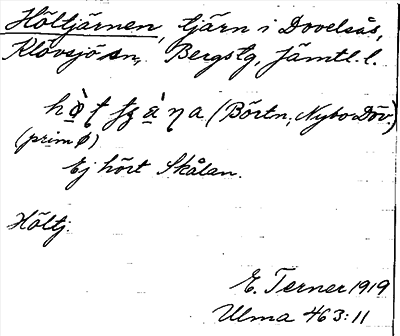 Höltjärnen, tjärn i Dovelsås,
Klövsjö sn, Bergs tg, Jämtl. l.
(Börtn, Nybo Döv.)
(prim ø)
Ej hört Skålan.
Höltj.
E. Terner 1919
Ulma 463:11